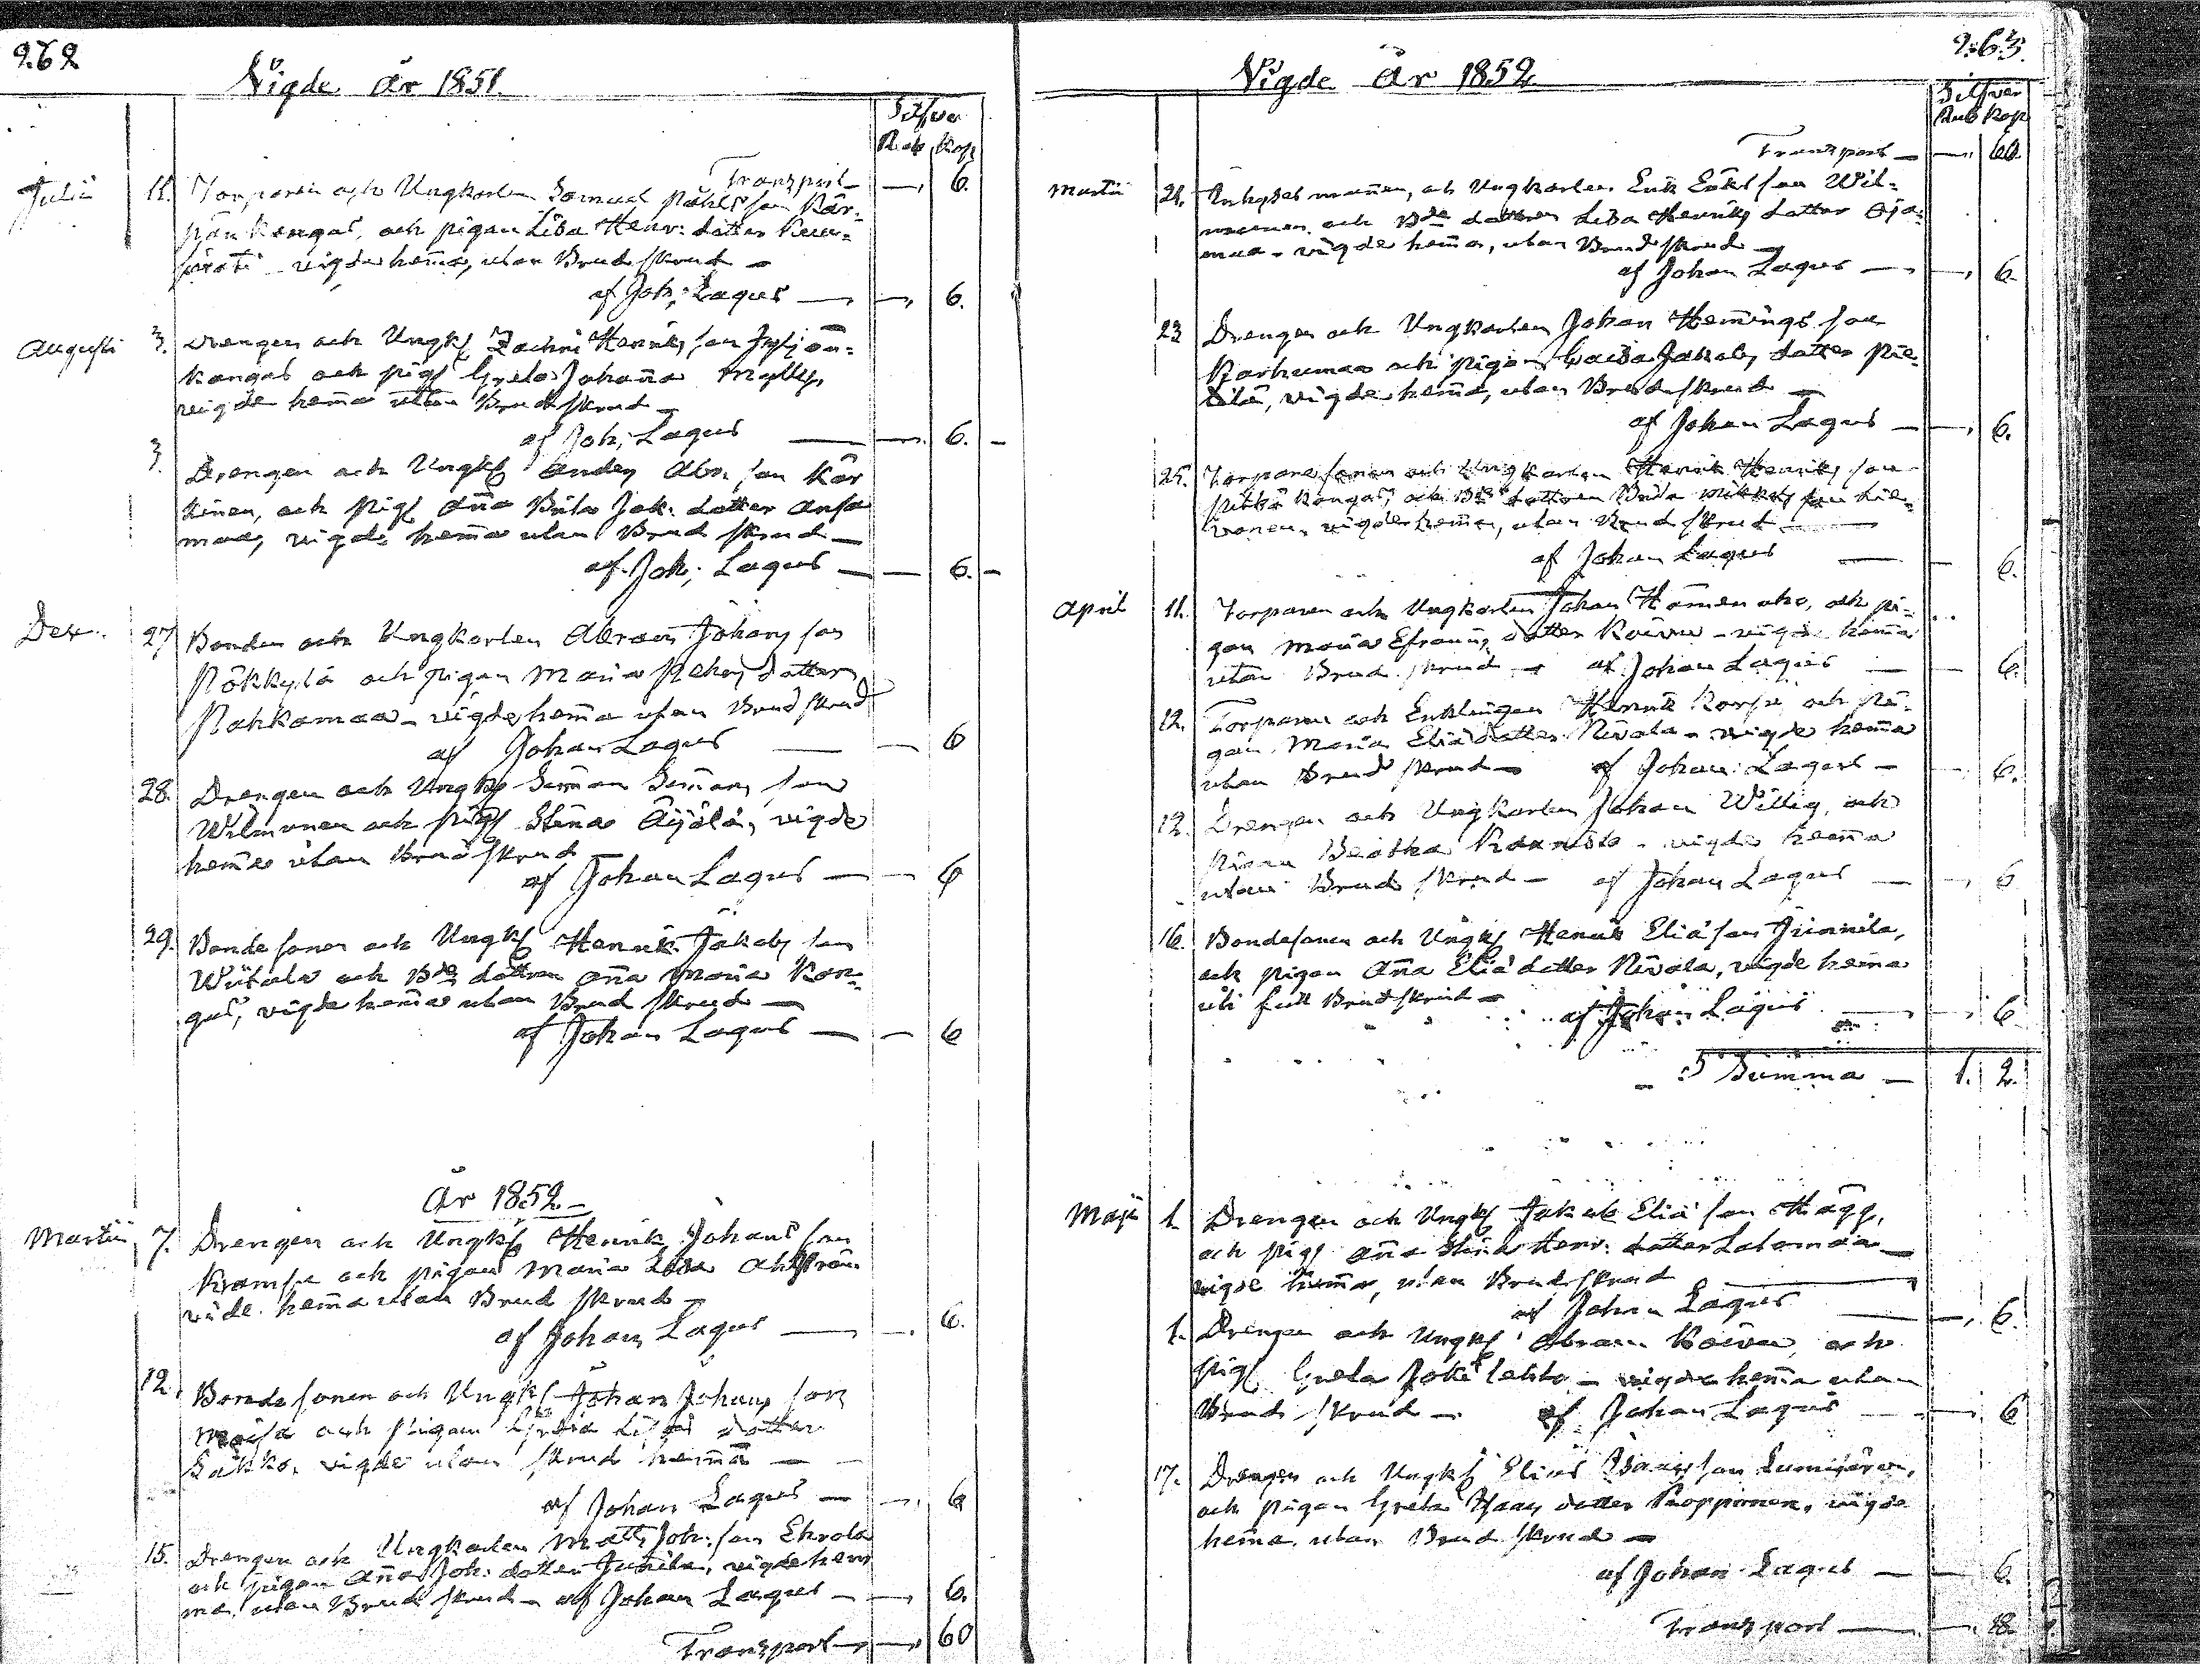 262
Vigde år 1851.
Silfver
Rub Kop
Transport — — 6.
Julii 11. Torparen och Ungkarlen Samuel Påhls son Kär-
pän kangas, och pigan Lisa Henr: dotter
vigde hemma, utan Brud skrud —
af Joh: Lagus — — 6.
Augusti 3. Drengen och Ungk Zachri Henriks son
kangas och pig Greta Johanna Mylly,
vigde hemma utan Brudskrud —
af Joh; Lagus — — 6. —
3. Drengen och Ungk Anders Abr. son Kär
kinen, och Pig Anna Brita Jak: dotter Ansa
maa, vigde hemma utan Brud skrud —
af Joh; Lagus — — 6. —
Dec. 27 Bonden och Ungkarlen Abram Johans son
Nökkylä och Pigan Maria dotter
Nahkamaa — vigde hemma utan Brud skrud
af Johan Lagus — — 6
28. Drengen och Ungk Simon Simons son
Wilmunen och Pig Stina Äijälä, vigde
hemma utan Brudskrud —
af Johan Lagus — — 6
29. Bondesonen och Ungk Henrik Jakobs son
Wiitala och Bde dottren Anna Maria Kan-
gas, vigde hemma utan Brud skrud —
af Johan Lagus — — 6
År 1852 —
Martii 7. Drengen och Ungk Henrik Johans son
Krampe och pigan Maria Lisa Ahlström
vide hemma utan Brud skrud —
af Johan Lagus — — 6.
12. Bondesonen och Ungk Johan Johans son
och Pigan dotter
Säkko, vigde utan skrud hemma —
af Johan Lagus — — 6
15. Drengen och Ungkarlen Matts Joh: son Ehrola
och pigan Anna Joh: dotter Junila, vigde hem
ma, utan Brud skrud — af Johan Lagus — — 6.
Transport — — 60
263.
Vigde år 1852
Silfver
Rub Kop
Transport — — 60.
Martii 21. Inhyses mannen, och Ungkarlen Erik Eriks son Wil-
munen och Bde dottren Lisa Henriks dotter Oja-
maa — vigde hemma, utan Brudskrud —
af Johan Lagus — — 6.
23 Drengen och Ungkarlen Johan Hemmings son
Karhumaa och Pigan Caisa Jakobs dotter Pie-
tilä, vigde hemma, utan Brudskrud —
af Johan Lagus — — 6.
25. Torparesonen och Ungkarlen Henrik Henriks son
Pitkä kangas, och Bde dottren Brita
vigde hemma, utan Brud skrud —
af Johan Lagus — — 6.
April 11. Torparen och Ungkarlen Johan Hämen aho, och pi-
gan Maria Efraims dotter Koivu — vigde hemma
utan Brud skrud — af Johan Lagus — — 6.
12. Torparen och Enklingen Henrik Korpe, och Pi-
gan Maria Elias dotter Nivala — vigde hemma
utan Brud skrud — af Johan Lagus — — 6.
12. Drengen och Ungkarlen Johan Willig, och
Pigan Beatha Kaunisto — vigde hemma
utan Brud skrud — af Johan Lagus — — 6
16. Bondesonen och Ungk Henrik Elias son Junnila,
och pigan Anna Elias dotter Nivala, vigde hemma
uti full Brudskrud — af Johan Lagus — — 6
Summa — 1. 2.
Maji 1. Drengen och Ungk Jakob Elias son Hägg,
och Pig Anna Stina Henr: dotter Latomaa —
vigde hemma, utan Brudskrud
af Johan Lagus — — 6.
1. Drengen och Ungk Abram Koivu, och
Pig Greta Joki lehto — vigde hemma utan
Brud skrud — af Johan Lagus — — 6
17. Drengen och Ungk Elias Isaacs son Lumijärvi,
och pigan Greta Isaacs dotter Paopponen, vigde
hemma, utan Brud skrud —
af Johan Lagus — — 6.
Transport — — 18.